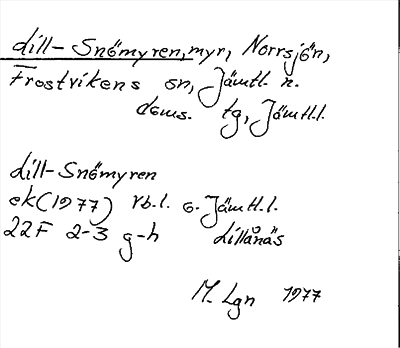 Lill-Snömyren, myr, Norrsjön,
Frostvikens sn, Jämtl. n.
doms. tg, Jämtl.l.
Lill-Snömyren
ek (1977) rb.l. o. Jämtl.l.
22F 2-3 g-h Lillånäs
M. Lgn 1977